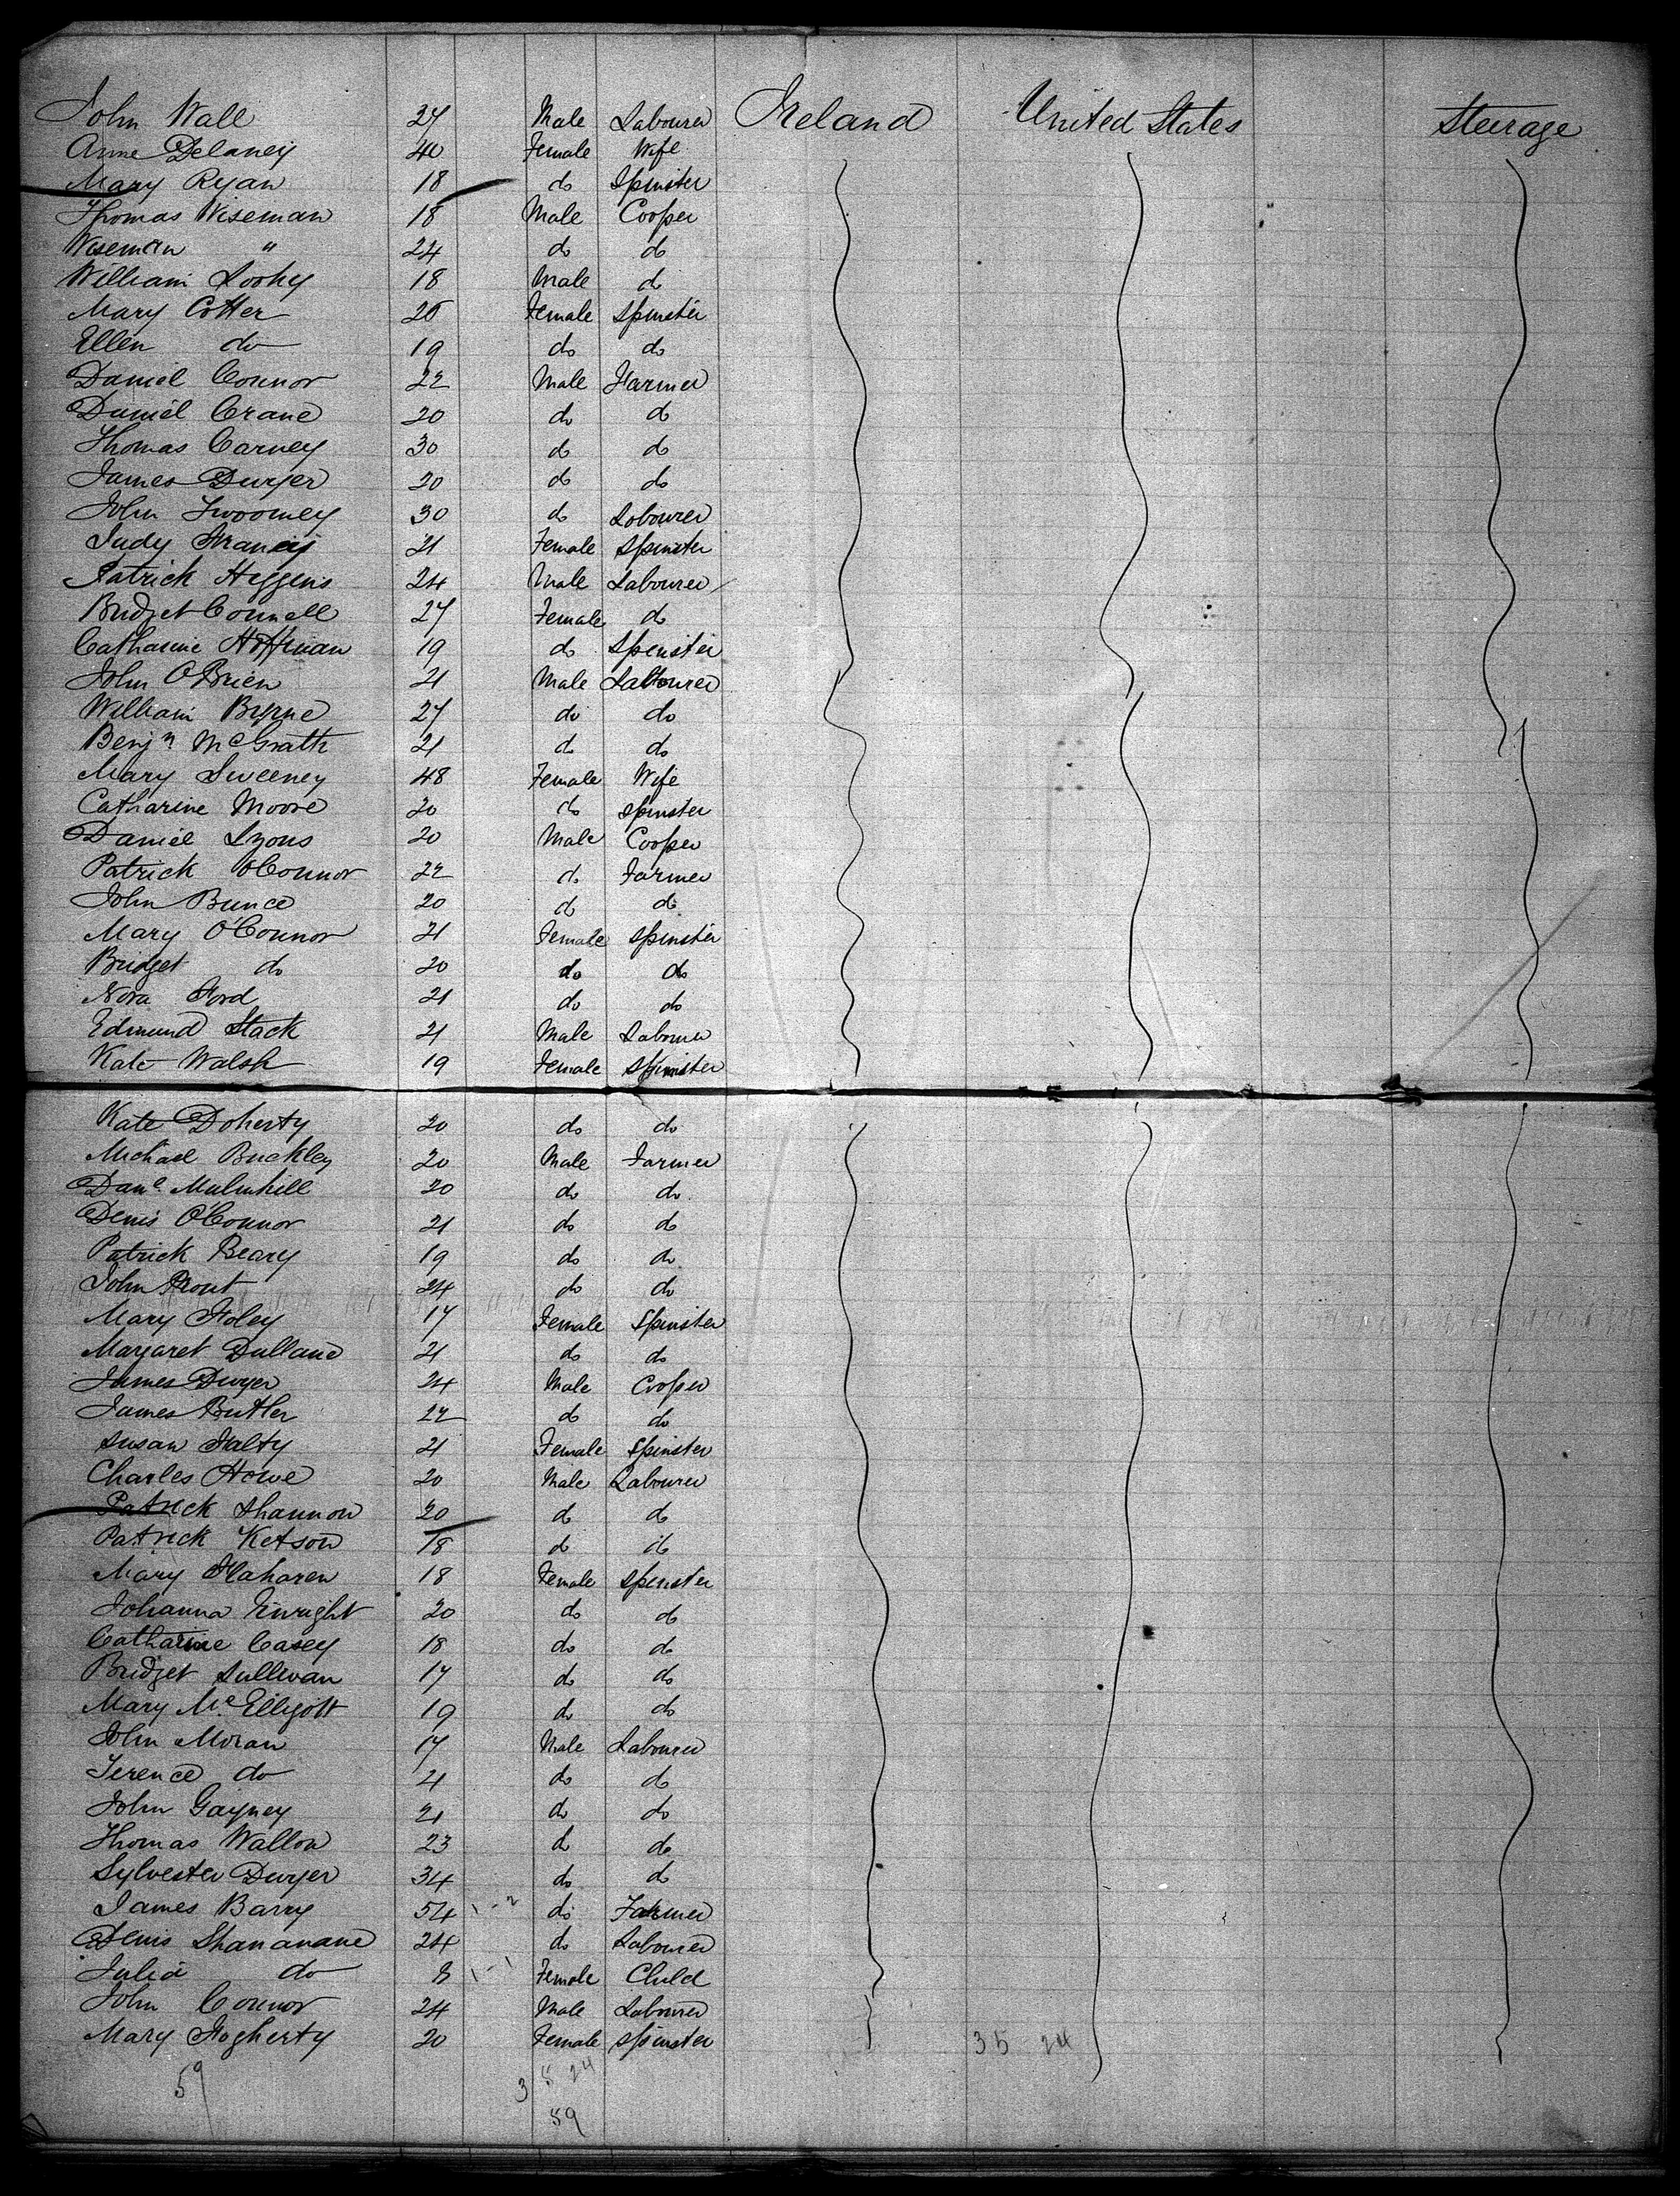 John Wall 27 Male Labourer Ireland United States Steerage
Anne Delaney 40 Female Wife
Mary Ryan 18 do Spinster
Thomas Wiseman 18 Male Cooper
Wiseman " 24 do do
William Looky 18 Male do
Mary Cotter 20 Female Spinster
Ellen do 19 do do
Daniel Connor 22 Male Farmer
Daniel Crane 20 do do
Thomas Carney 30 do do
James Dwyer 20 do do
John Twoomey 30 do Labourer
Judy 21 Female Spinster
Patrick Higgins 24 Male Labourer
Bridget Connell 27 Female do
Catharine Hoffman 19 do Spinster
John O'Brien 21 Male Labourer
William Byrne 27 do do
Benjn McGrath 21 do do
Mary Sweeney 48 Female Wife
Catharine Moore 20 do Spinster
Daniel Lyons 20 Male Cooper
Patrick O'Connor 22 do Farmer
John Bunce 20 do do
Mary O'Connor 21 Female Spinster
Bridget do 20 do do
Nora Ford 21 do do
Edmund Stack 21 Male Labourer
Kate Walsh 19 Female Spinster
Kate Doherty 20 do do
Michael Buckley 20 Male Farmer
Danl Mulinhill 20 do do
Denis O'Connor 21 do do
Patrick Beary 19 do do
John Prout 24 do do
Mary Foley 17 Female Spinster
Margaret Dullane 21 do do
James Dwyer 24 Male Cooper
James Butler 22 do do
Susan Falty 21 Female Spinster
Charles Howe 20 Male Labourer
Patrick Shannon 20 do do
Patrick Ketson 18 do do
Mary Flaharen 18 Female Spinster
Johanna Enright 20 do do
Catharine Casey 18 do do
Bridget Sullivan 17 do do
Mary McElligott 19 do do
John Moran 17 Male Labourer
Terence do 21 do do
John Gayney 21 do do
Thomas Wallon 23 do do
Sylvester Dwyer 34 do do
James Barry 54 do Farmer
Denis Shananane 24 do Labourer
Julia do 8 Female Child
John Connor 24 Male Labourer
Mary Fogherty 20 Female Spinster
35 24
59 35 24
59